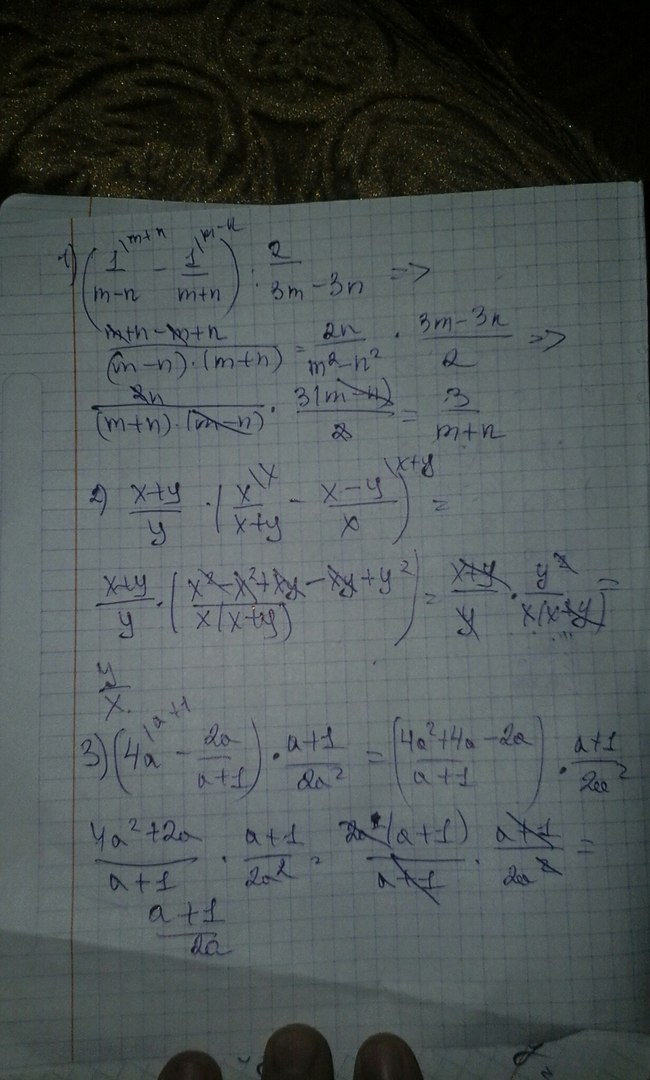 1) (1^{\m+n}/(m-n) - 1^{\m-n}/(m+n)) : 2/(3m-3n) =>
(m+n-m+n)/((m-n)·(m+n)) = 2n/(m²-n²) · (3m-3n)/2 =>
2n/((m+n)·(m-n)) · 3(m-n)/2 = 3/(m+n)
2) (x+y)/y · (x^{\x}/(x+y) - (x-y)/x^{\x+y}) =
(x+y)/y · ((x²-x²+xy-xy+y²)/(x(x+y))) = (x+y)/y · y²/(x(x+y)) =
y/x.
3) (4a^{\a+1} - 2a/(a+1)) · (a+1)/2a² = ((4a²+4a-2a)/(a+1)) · (a+1)/2a²
(4a²+2a)/(a+1) · (a+1)/2a² = 2a(a+1)/(a+1) · (a+1)/2a² =
(a+1)/2a